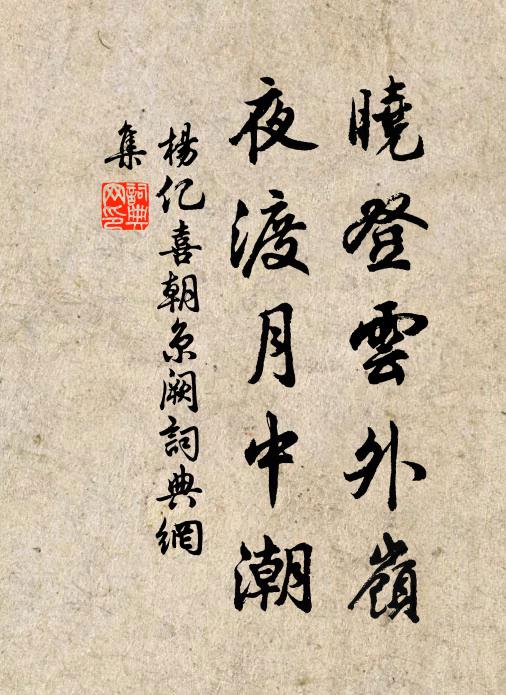 曉登雲外嶺
夜渡月中潮
楊亿喜朝京阙詞典網
集
詞典网印